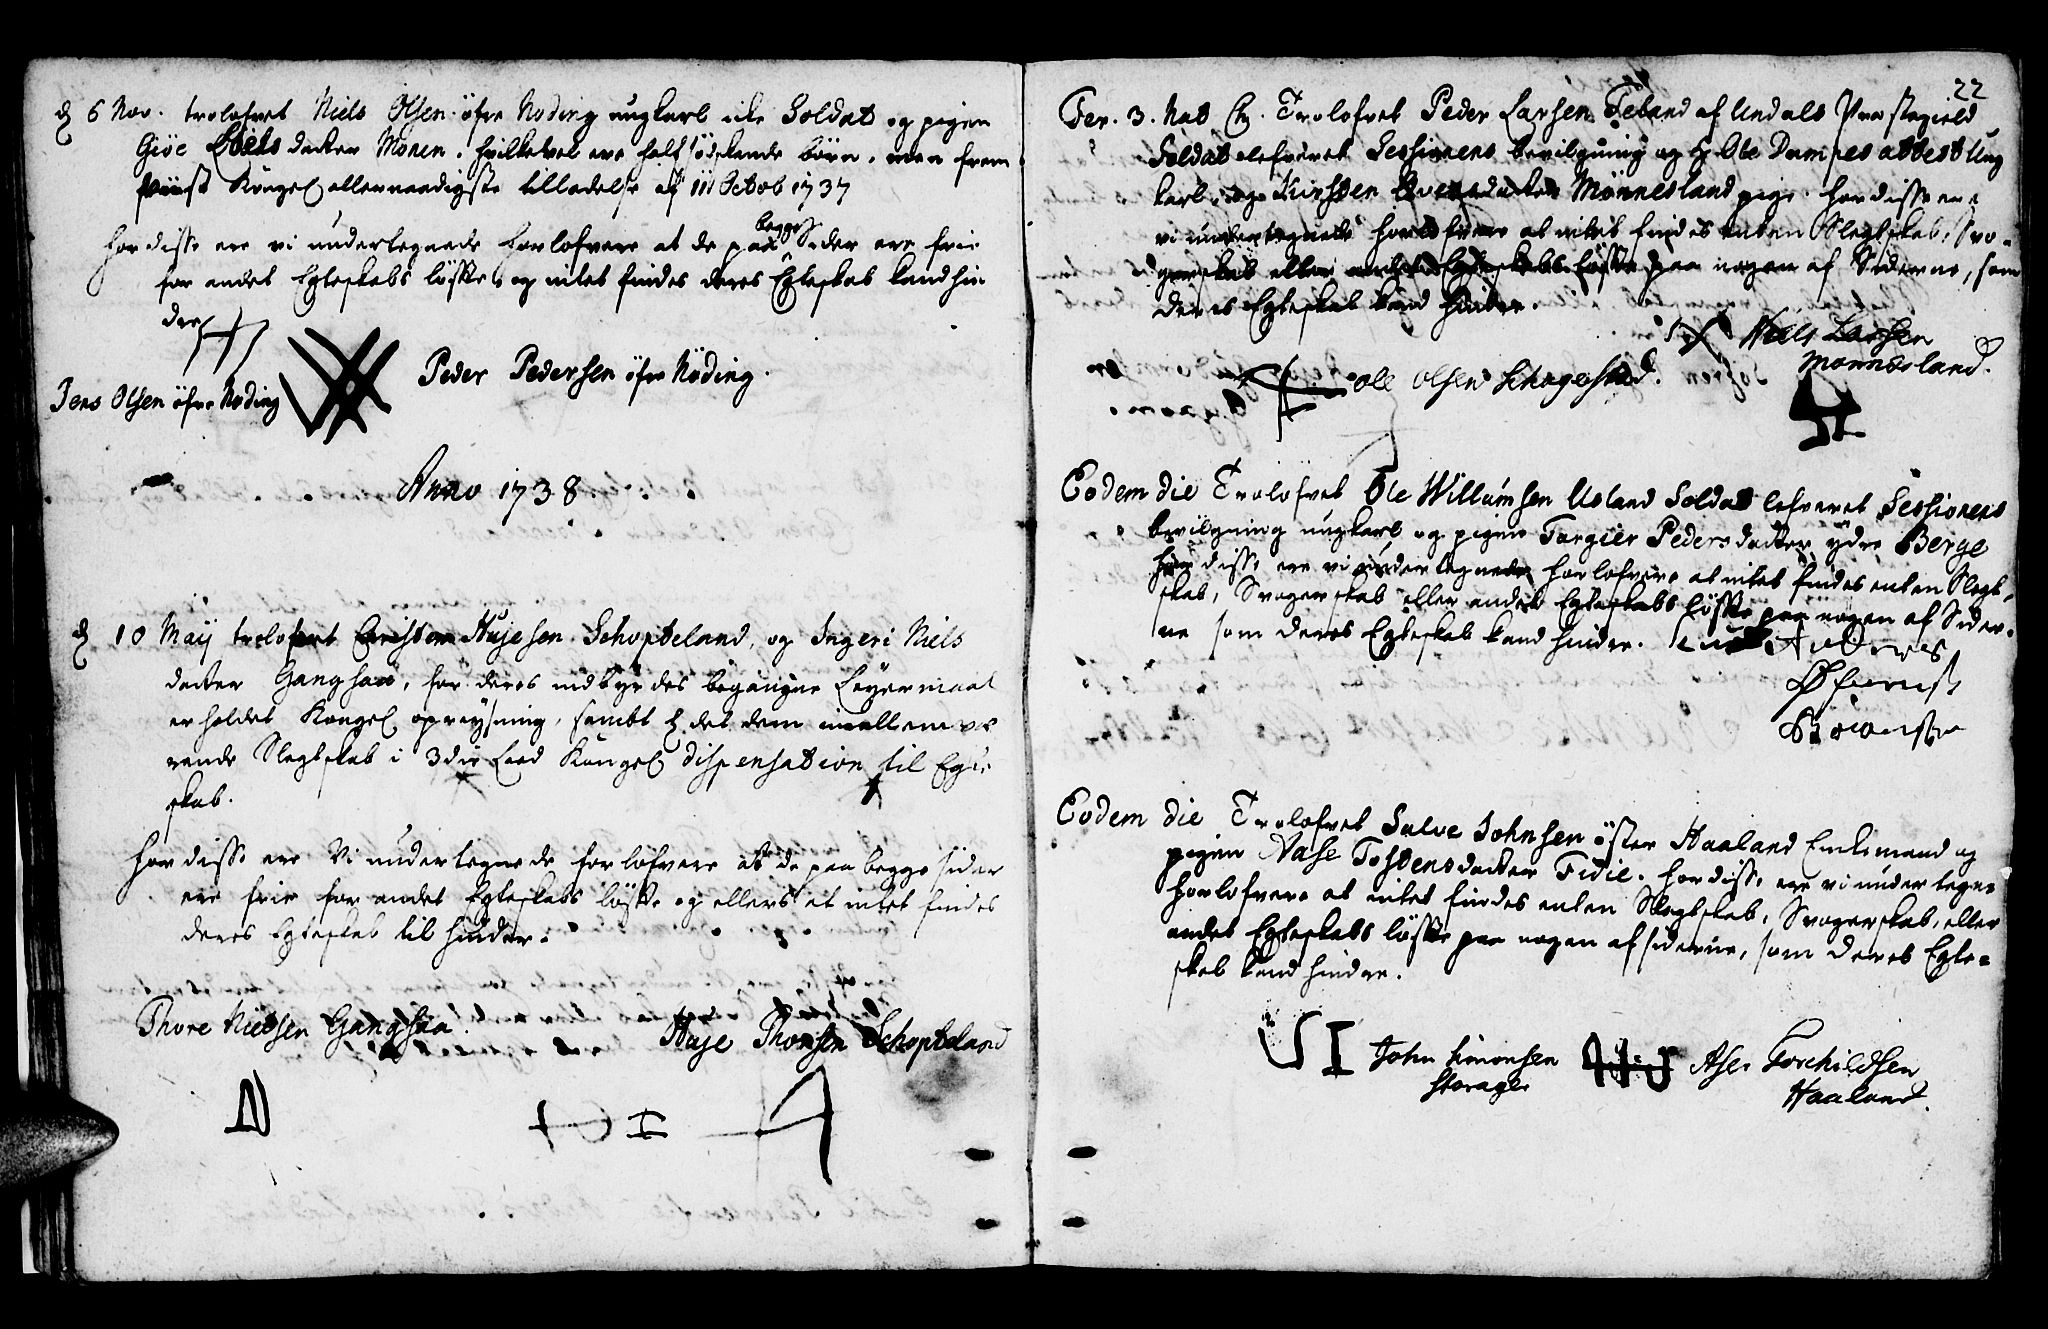 d 6 Nov. trolofvet Niels Olsen öfre Noding ungkarl icke Soldat og pigen
Giöe datter Monen, hvilke vel ere half södskende börn, men frem
viist Kongel allernaadigste tilladelse af 11 Octob 1737
for disse ere vi undertegnede forlofvere at de paa begge Seder ere frie
for andet Egteskabs löffte, og intet findes deres Egteskab kand hin
dre
Peder Pedersen öfre Nöding.
Jens Olsen öfre Noding
Anno 1738
d 10 Maij trolofvet Christen Hujesen Schopteland, og Ingeri Niels
datter Gangsaa, for deres indbyrdes begangne Leyermaal
erholdet Kongel opreysning, sambt det dem imellem væ
rende Slegtskab i 3die Leed Kongel dispensation til Egte
skab.
for disse ere Vi undertegnede forlofvere at de paa begge sider
ere frie for andet Egteskabs löffte og ellers at intet findes
deres Egteskab til hinder.
Thore Nielsen Gangsaa.
Huje Thorsen Schopteland
N
22
Fer. 3. Nat Ch. Trolofvet Peder Larsen Feland af Undals Præstegield
Soldat lefveret Sessionens bevilgning og H Ole Dampes attest Ung
karl, og Kirsten datter Mönnesland pige. for disse ere
vi undertegnede forlofvere at intet findes enten Slegtskab, Svo-
gerskab eller andet Egteskabs löffte paa nogen af Siderne, som
deres Egteskab kand hindre.
Niels Larsen
Monnesland.
Ole Olsen Schogestad.
Eodem die Trolofvet Ole Willumsen Usland Soldat lefveret Sessionens
bevilgning ungkarl og pigen Targier Peders datter ydre Berge
for disse ere vi undertegnede forlofvere at intet findes enten Slegt-
skab, Svogerskab eller andet Egteskabs löffte paa nogen af Sider-
ne som deres Egteskab kand hindre.
Eodem die Trolofvet Salve Johnsen öster Haaland Enkemand og
pigen Aase Tostensdatter Fidie. for disse ere vi undertegne
forlofvere at intet findes enten Slegtskab, Svogerskab, eller
andet Egteskabs löffte paa nogen af siderne, som deres Egte-
skab kand hindre.
John Simonsen
Storager
Ase Torchildsen
Haaland.